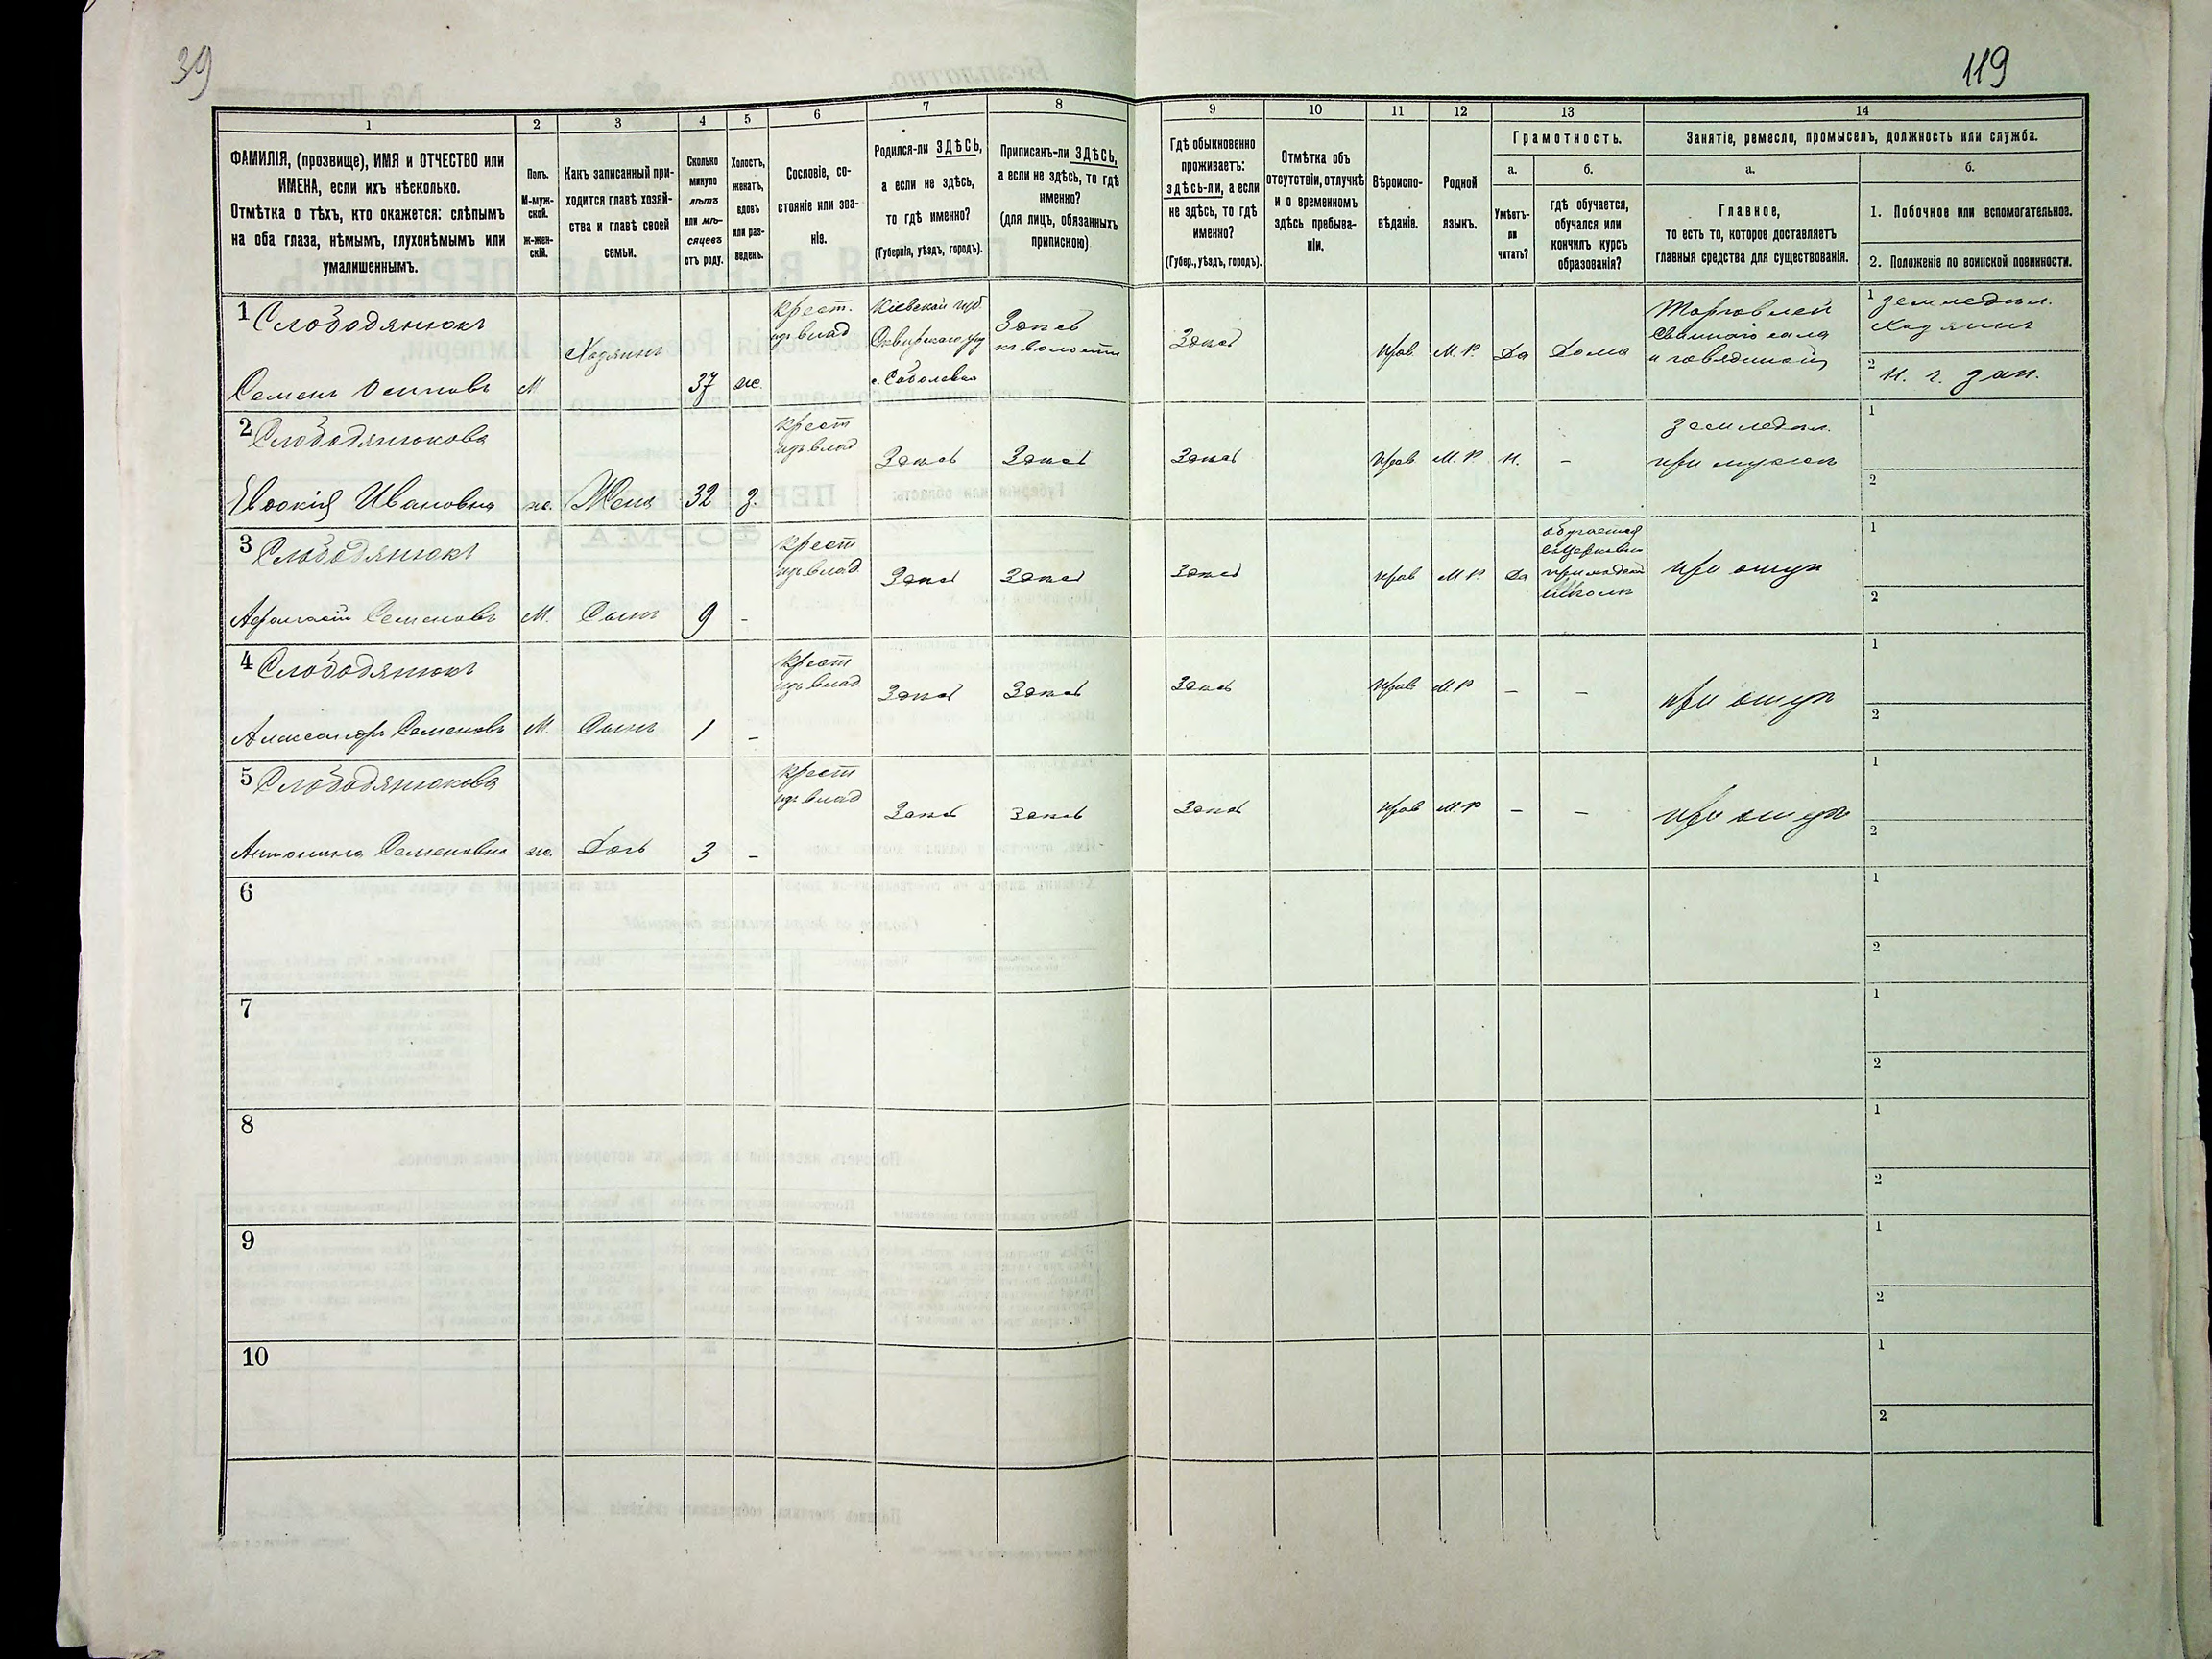 39
119
1
2
3
4
5
6
7
8
9
10
11
12
13
14
ФАМИЛІЯ, (прозвище), ИМЯ и ОТЧЕСТВО или
ИМЕНА, если ихъ нѣсколько.
Отмѣтка о тѣхъ, кто окажется: слѣпымъ
на оба глаза, нѣмымъ, глухонѣмымъ или
умалишеннымъ.
Полъ.
М-муж-
ской.
ж-жен-
скій.
Какъ записанный при-
ходится главѣ хозяй-
ства и главѣ своей
семьи.
Сколько
минуло
лѣтъ
или мѣ-
сяцевъ
отъ роду.
Холостъ,
женатъ,
вдовъ
или раз-
веденъ.
Сословіе, со-
стояніе или зва-
ніе.
Родился-ли ЗДѢСЬ,
а если не здѣсь,
то гдѣ именно?
(Губернія, уѣздъ, городъ).
Приписанъ-ли ЗДѢСЬ,
а если не здѣсь, то гдѣ
именно?
(для лицъ, обязанныхъ
припискою)
Гдѣ обыкновенно
проживаетъ:
здѣсь-ли, а если
не здѣсь, то гдѣ
именно?
(Губер., уѣздъ, городъ).
Отмѣтка объ
отсутствіи, отлучкѣ
и о временномъ
здѣсь пребыва-
ніи.
Вѣроиспо-
вѣданіе.
Родной
языкъ.
Грамотность.
а.
Умѣетъ-
ли
читать?
б.
гдѣ обучается,
обучался или
кончилъ курсъ
образованія?
Занятіе, ремесло, промыселъ, должность или служба.
а.
Главное,
то есть то, которое доставляетъ
главныя средства для существованія.
б.
1. Побочное или вспомогательное.
2. Положеніе по воинской повинности.
1 Слободянюкъ
Семенъ Осиповъ
М
Хозяинъ
37
же.
крест.
изъ влад
Кіевской губ.
Сквирскаго уѣз
с. Соболевка
Здѣсь
къ волости
Здѣсь
прав
М. Р.
да
дома
Торговлей
свинного сала
и говядиной
1 земледѣл.
Хозяинъ
2 н. г. зап.
2 Слободянюкова
Евдокія Ивановна
же.
Жена
32
з.
крест
изъ влад
Здѣсь
Здѣсь
Здѣсь
прав
М. Р.
н.
–
земледѣл.
при мужѣ
1
2
3 Слободянюкъ
Афанасій Семеновъ
М.
Сынъ
9
-
крест
изъ влад
Здѣсь
Здѣсь
Здѣсь
прав
М Р.
да
обучается
въ церковно
приходской
школѣ
при отцѣ
1
2
4 Слободянюкъ
Александръ Семеновъ
М.
Сынъ
1
-
крест
изъ влад
Здѣсь
Здѣсь
Здѣсь
прав
М Р
–
–
при отцѣ
1
2
5 Слободянюкова
Антонина Семеновна
же.
Дочь
3
-
крест
изъ влад
Здѣсь
Здѣсь
Здѣсь
прав
М. Р
–
–
при отцѣ
1
2
6
1
2
7
1
2
8
1
2
9
1
2
10
1
2